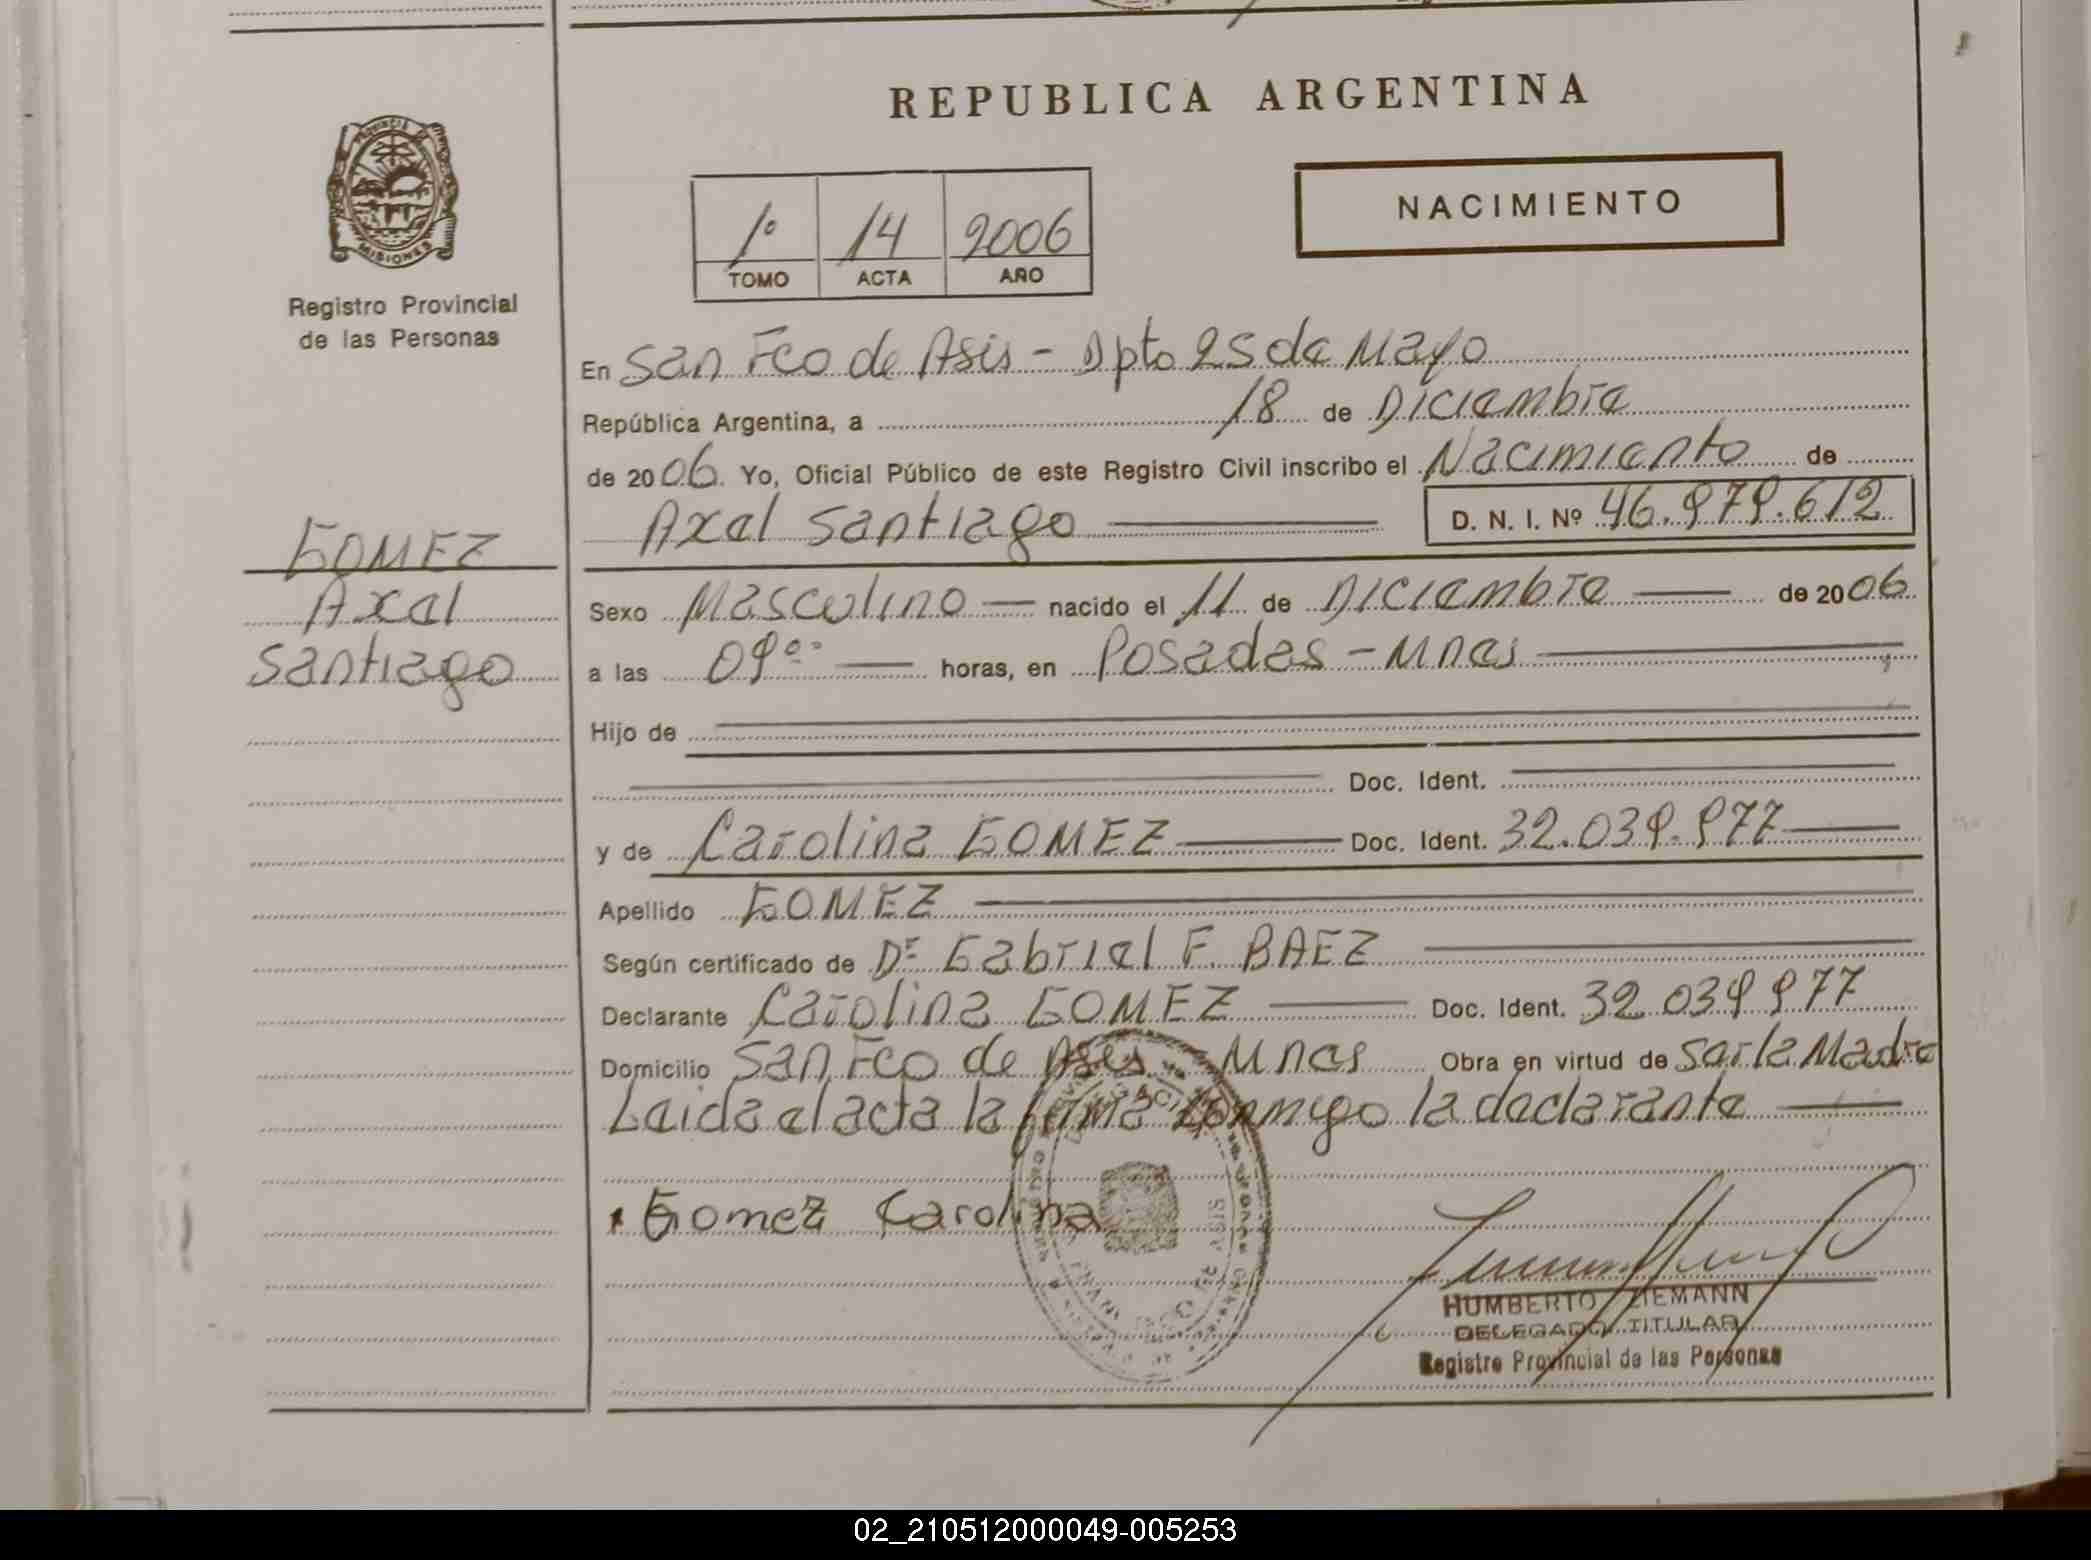 REPUBLICA ARGENTINA
PROVINCIA DE
MISIONES
Registro Provincial
de las Personas
1º 14 2006
TOMO ACTA AÑO
NACIMIENTO
En San Fco de Asis - Dpto 25 de Mayo
República Argentina, a 18 de Diciembre
de 2006. Yo, Oficial Público de este Registro Civil inscribo el Nacimiento de
Axel Santiago D. N. I. Nº 46.979.612
GOMEZ
Axel
Santiago
Sexo Masculino nacido el 11 de Diciembre de 2006
a las 09°° horas, en Posadas - Mnes
Hijo de
Doc. Ident.
y de Carolina GOMEZ Doc. Ident. 32.039.977
Apellido GOMEZ
Según certificado de Dr Gabriel F. BAEZ
Declarante Carolina GOMEZ Doc. Ident. 32.039.977
Domicilio San Fco de Asis Mnes Obra en virtud de Ser la Madre
Leida el acta la firma conmigo la declarante
Gomez Carolina
HUMBERTO ZIEMANN
DELEGADO TITULAR
Registro Provincial de las Personas
02_210512000049-005253